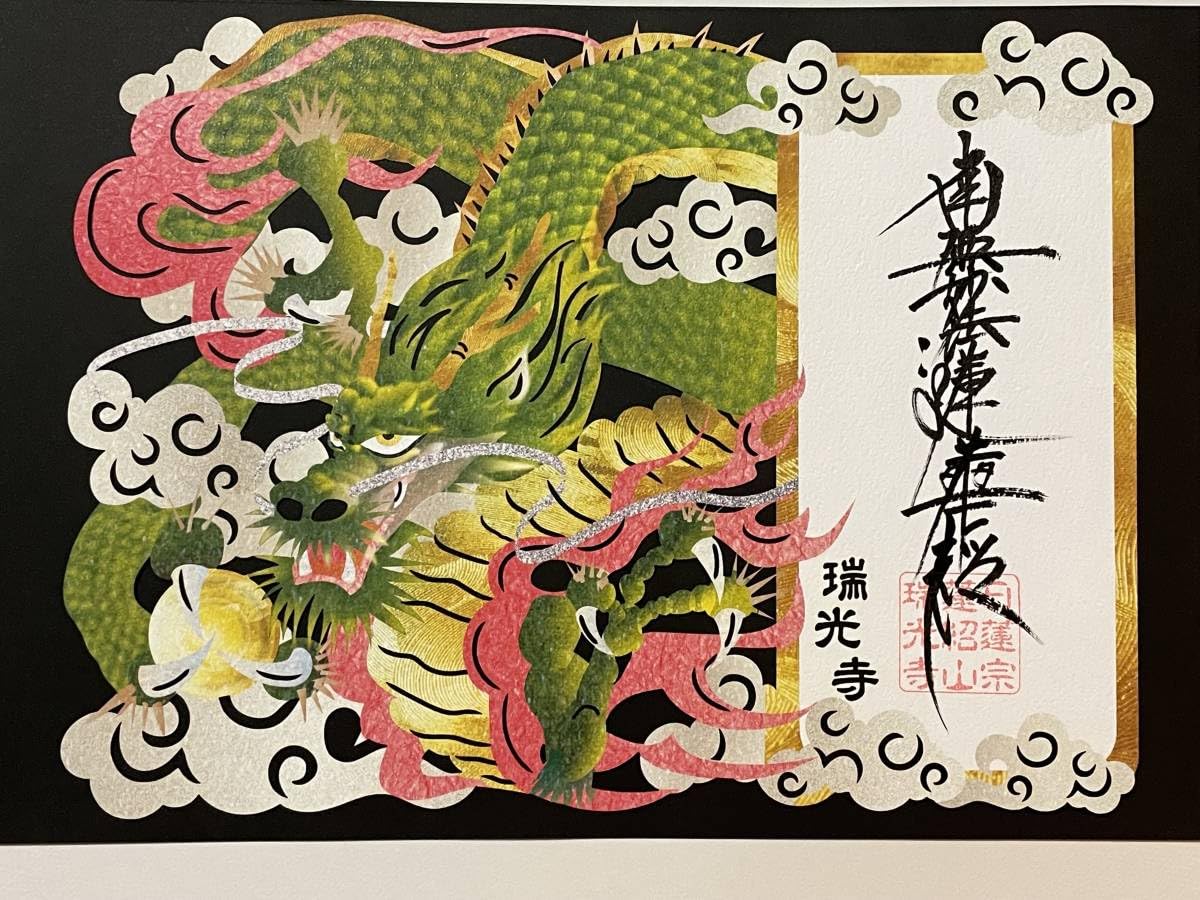 南無妙法蓮華経
日蓮宗
瑞光寺
瑞光寺